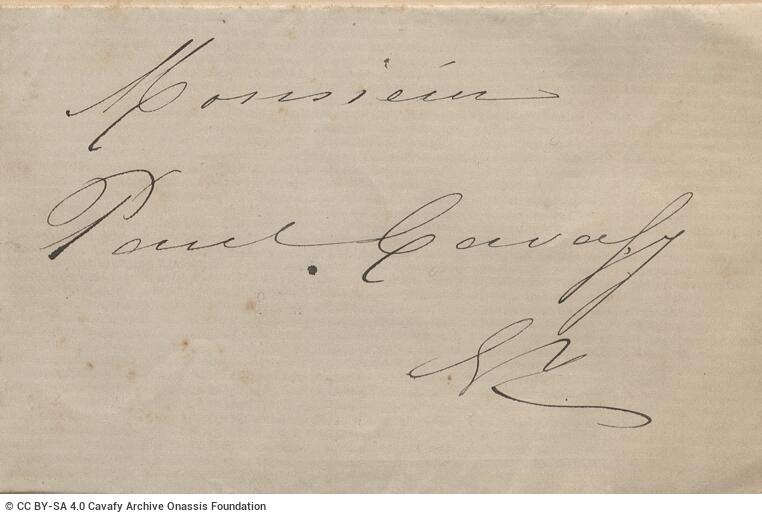 Monsieur
Paul Cavafy
© CC BY-SA 4.0 Cavafy Archive Onassis Foundation